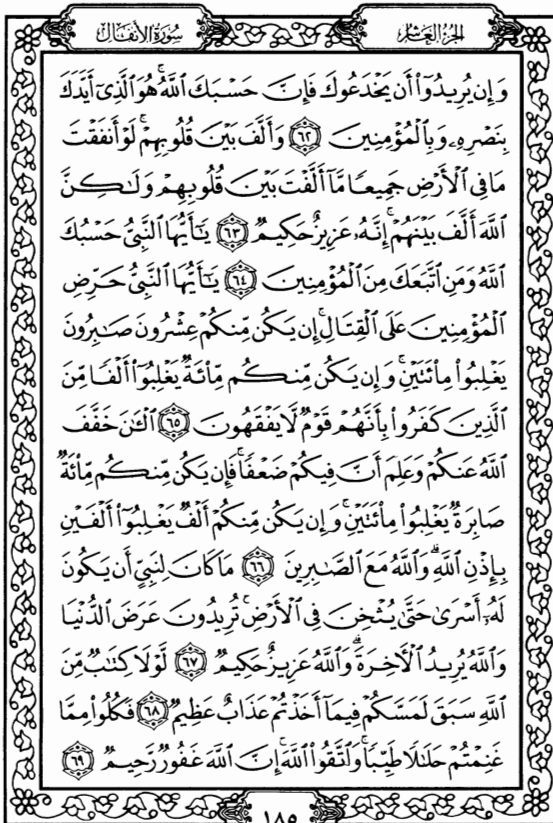 سُورَةُ الأَنفَال
الجُزْءُ العَاشِرُ
وَإِن يُرِيدُوٓا۟ أَن يَخْدَعُوكَ فَإِنَّ حَسْبَكَ ٱللَّهُ ۚ هُوَ ٱلَّذِىٓ أَيَّدَكَ
بِنَصْرِهِۦ وَبِٱلْمُؤْمِنِينَ ٦٢ وَأَلَّفَ بَيْنَ قُلُوبِهِمْ ۚ لَوْ أَنفَقْتَ
مَا فِى ٱلْأَرْضِ جَمِيعًا مَّآ أَلَّفْتَ بَيْنَ قُلُوبِهِمْ وَلَـٰكِنَّ
ٱللَّهَ أَلَّفَ بَيْنَهُمْ ۚ إِنَّهُۥ عَزِيزٌ حَكِيمٌ ٦٣ يَـٰٓأَيُّهَا ٱلنَّبِىُّ حَسْبُكَ
ٱللَّهُ وَمَنِ ٱتَّبَعَكَ مِنَ ٱلْمُؤْمِنِينَ ٦٤ يَـٰٓأَيُّهَا ٱلنَّبِىُّ حَرِّضِ
ٱلْمُؤْمِنِينَ عَلَى ٱلْقِتَالِ ۚ إِن يَكُن مِّنكُمْ عِشْرُونَ صَـٰبِرُونَ
يَغْلِبُوا۟ مِا۟ئَتَيْنِ ۚ وَإِن يَكُن مِّنكُم مِّا۟ئَةٌ يَغْلِبُوٓا۟ أَلْفًا مِّنَ
ٱلَّذِينَ كَفَرُوا۟ بِأَنَّهُمْ قَوْمٌ لَّا يَفْقَهُونَ ٦٥ ٱلْـَٔـٰنَ خَفَّفَ
ٱللَّهُ عَنكُمْ وَعَلِمَ أَنَّ فِيكُمْ ضَعْفًا ۚ فَإِن يَكُن مِّنكُم مِّا۟ئَةٌ
صَابِرَةٌ يَغْلِبُوا۟ مِا۟ئَتَيْنِ ۚ وَإِن يَكُن مِّنكُمْ أَلْفٌ يَغْلِبُوٓا۟ أَلْفَيْنِ
بِإِذْنِ ٱللَّهِ ۗ وَٱللَّهُ مَعَ ٱلصَّـٰبِرِينَ ٦٦ مَا كَانَ لِنَبِىٍّ أَن يَكُونَ
لَهُۥٓ أَسْرَىٰ حَتَّىٰ يُثْخِنَ فِى ٱلْأَرْضِ ۚ تُرِيدُونَ عَرَضَ ٱلدُّنْيَا
وَٱللَّهُ يُرِيدُ ٱلْـَٔاخِرَةَ ۗ وَٱللَّهُ عَزِيزٌ حَكِيمٌ ٦٧ لَّوْلَا كِتَـٰبٌ مِّنَ
ٱللَّهِ سَبَقَ لَمَسَّكُمْ فِيمَآ أَخَذْتُمْ عَذَابٌ عَظِيمٌ ٦٨ فَكُلُوا۟ مِمَّا
غَنِمْتُمْ حَلَـٰلًا طَيِّبًا ۚ وَٱتَّقُوا۟ ٱللَّهَ ۚ إِنَّ ٱللَّهَ غَفُورٌ رَّحِيمٌ ٦٩
١٨٥